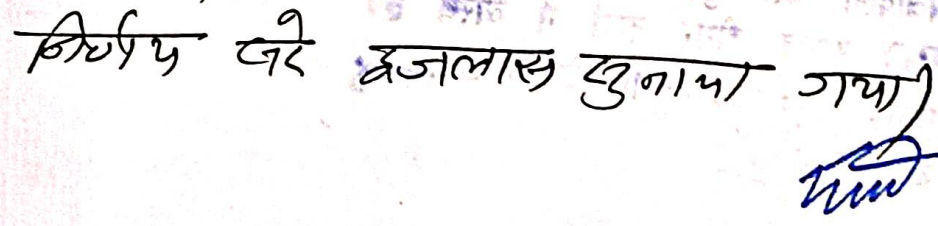 निर्णय सरे इजलास सुनाया गया